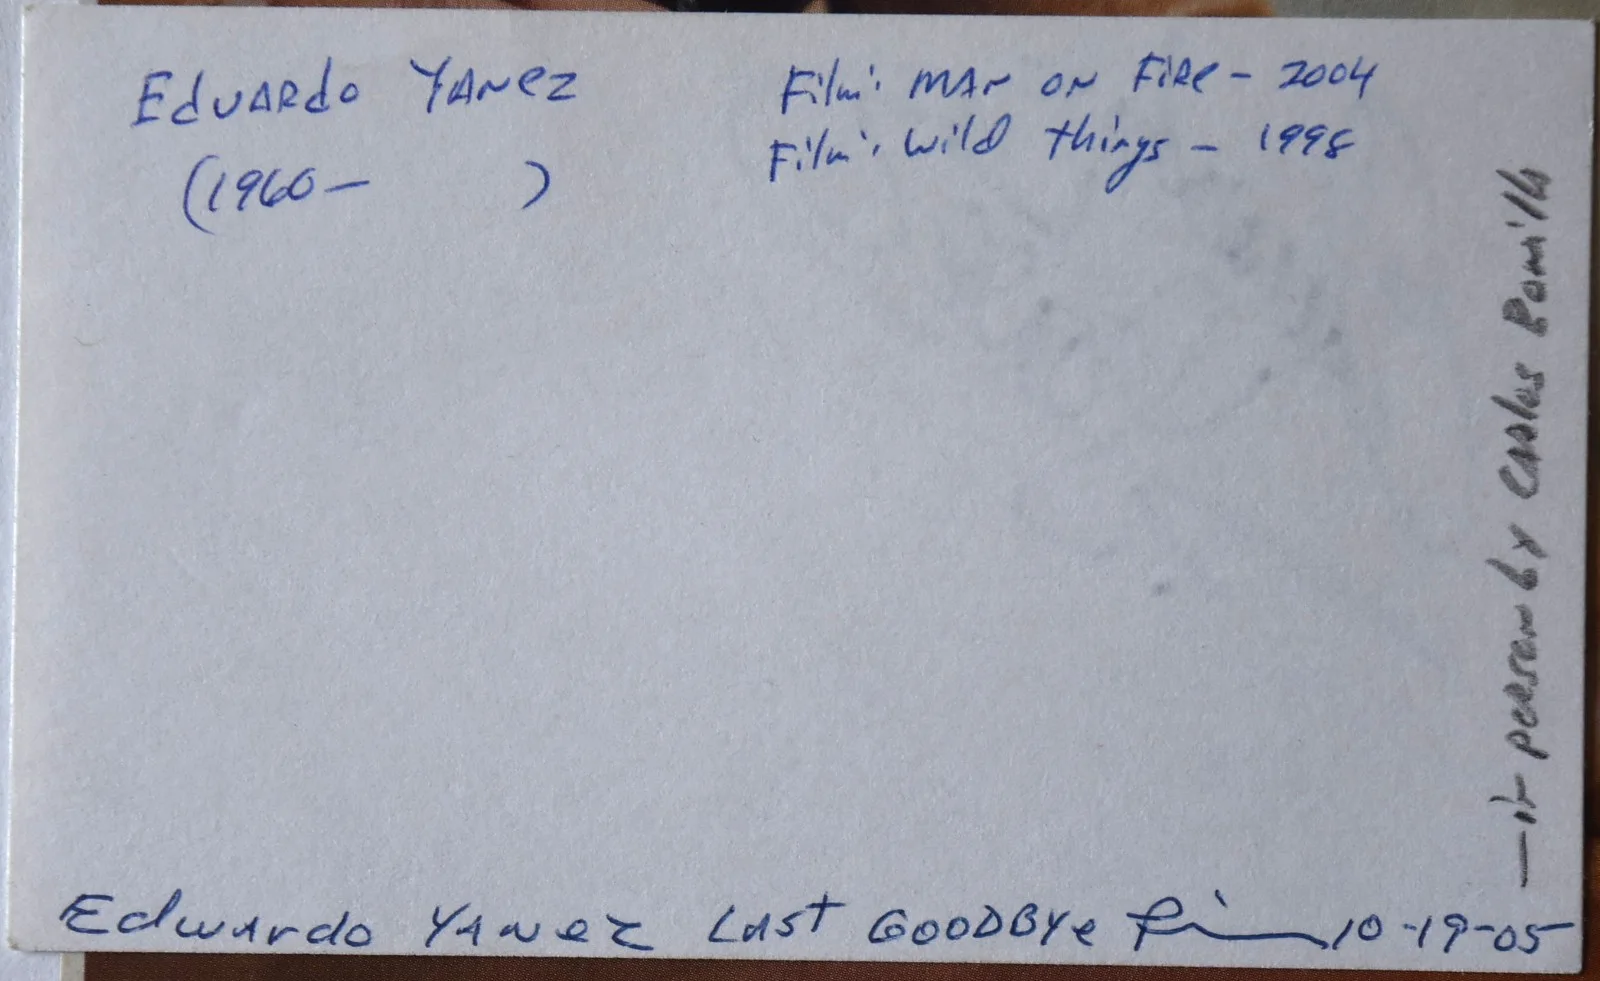 Eduardo Yanez
(1960- )
Film: Man on Fire - 2004
Film: Wild Things - 1998
Edwardo Yanez Last Goodbye 10-19-05
- in person by Carlos